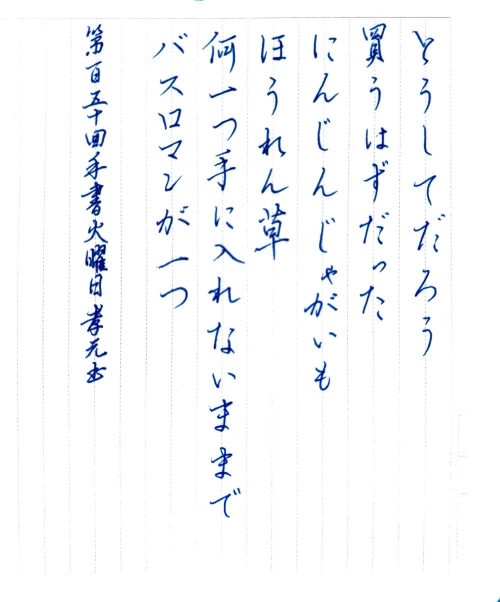 どうしてだろう
買うはずだった
にんじんじゃがいも
ほうれん草
何一つ手に入れないままで
バスロマンが一つ
第百五十回手書火曜日孝元書